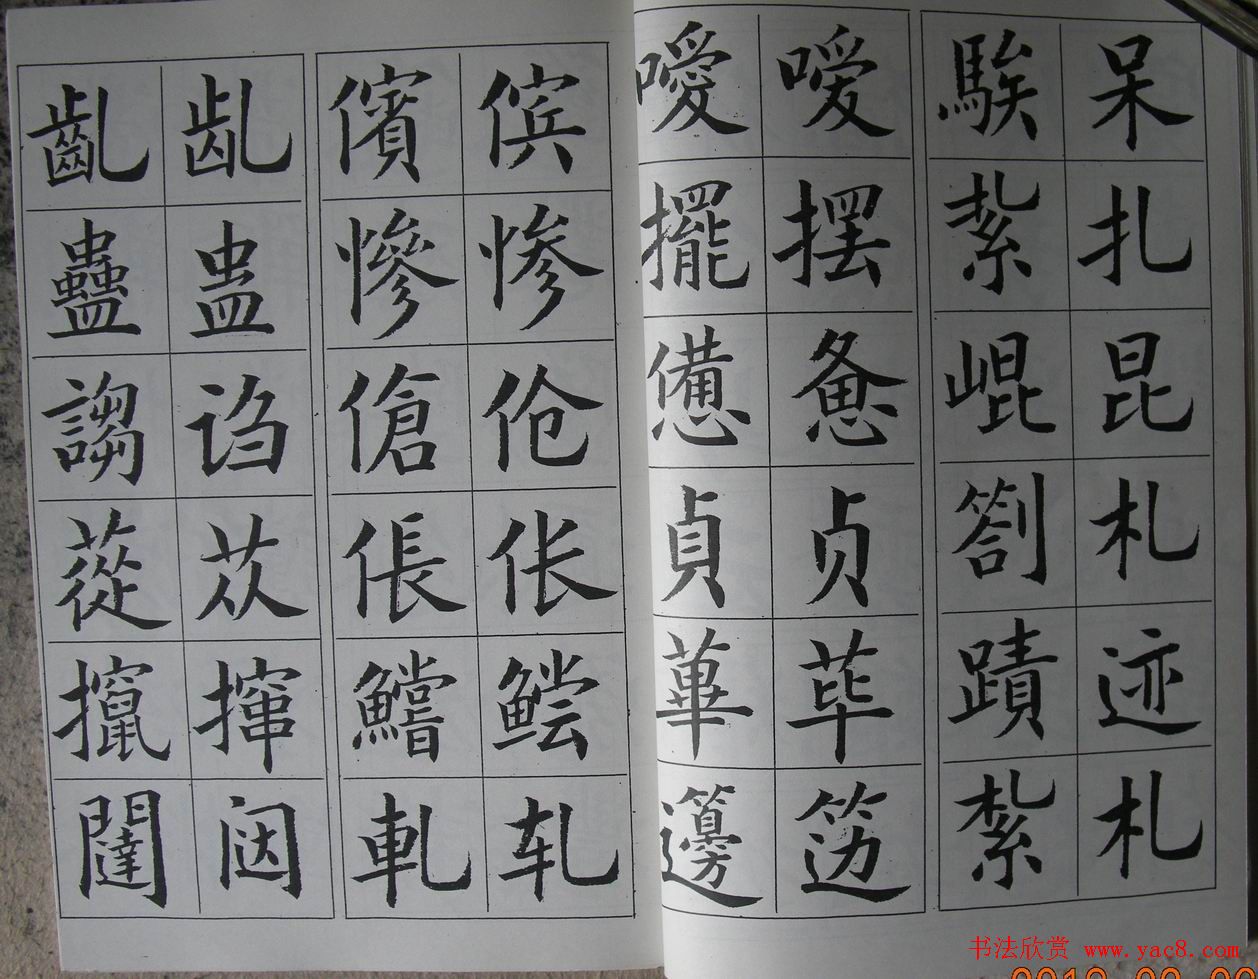 呆扎昆札迹札
騃紥崐劄蹟紮
嗳摆惫贞荜笾
噯擺憊貞蓽籩
傧惨伧伥鲿轧
儐慘傖倀鱨軋
龀蛊诌苁撺闼
齔蠱謅蓯攛闥
书法欣赏 www.yac8.com